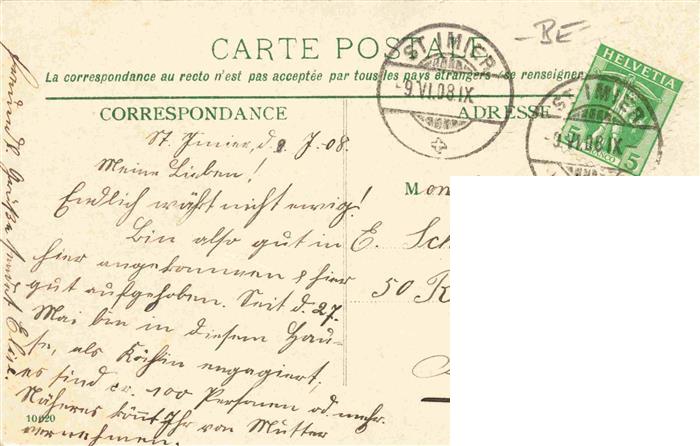 BE
CARTE POSTALE
La correspondance au recto n'est pas acceptée par tous les pays étrangers (se renseigner
CORRESPONDANCE
ADRESSE
ST. IMIER
-9.VI.08.IX
HELVETIA
5 5
FRANCO
ST. IMIER
-9.VI.08.IX
St. Imier, d. 9. J. 08.
Meine Lieben!
Endlich währt nicht ewig!
Bin also gut in
hier angekommen & hier
gut aufgehoben. Seit d. 27.
Mai bin in diesem Hau-
se, als Köchin engagiert,
es sind ca. 100 Personen od. mehr.
Näheres könnt Ihr von Mutter
vernehmen.
Grüsse
Elise.
Mon
E. Sch
50 R
10020